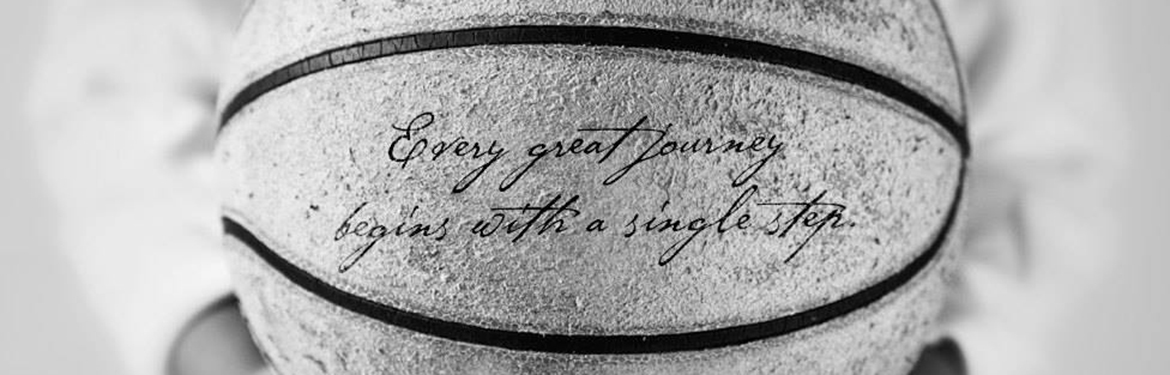 Every great journey
begins with a single step.